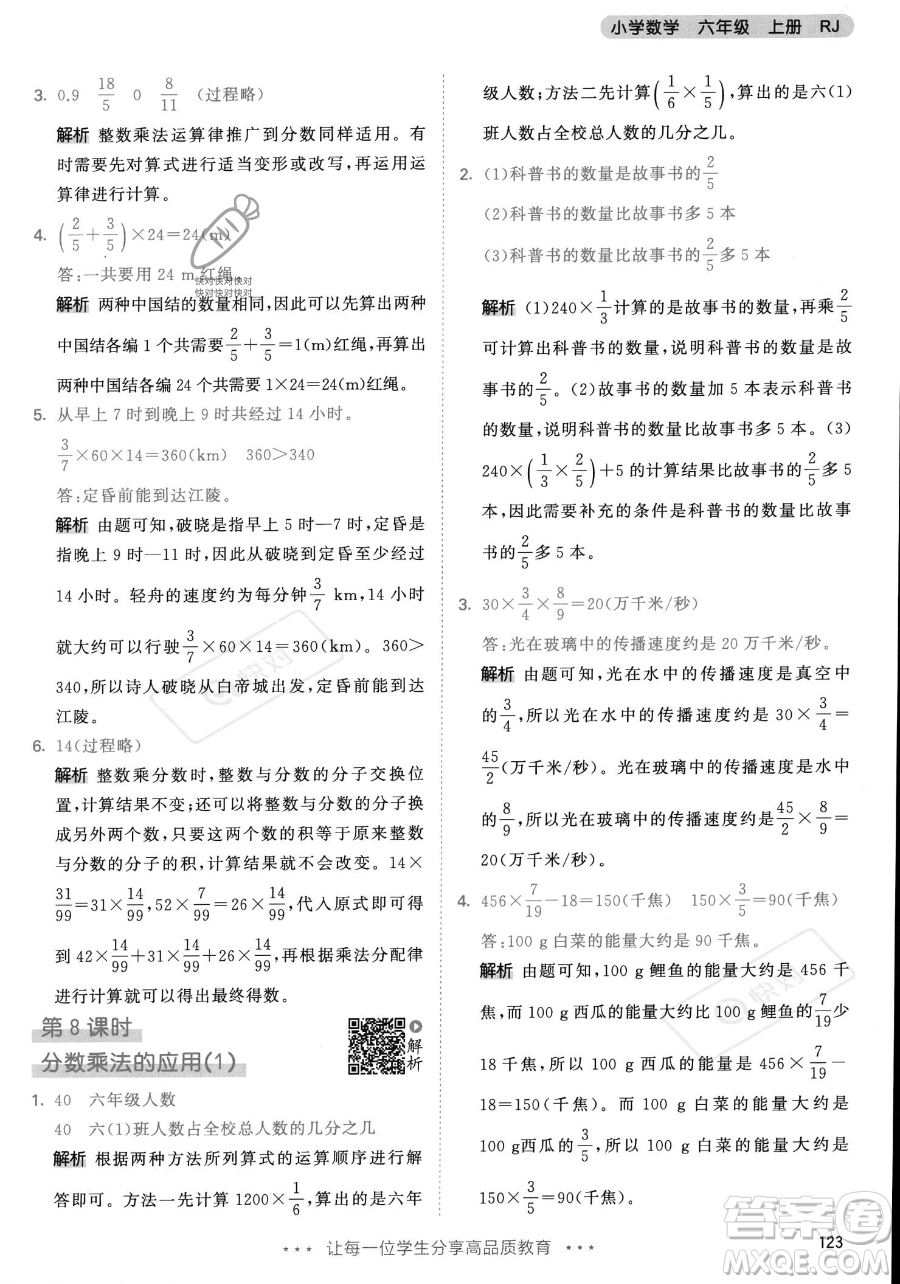 小学数学 六年级 上册 RJ
3. 0.9 18/5 0 8/11 (过程略)
解析 整数乘法运算律推广到分数同样适用。有
时需要先对算式进行适当变形或改写,再运用运
算律进行计算。
4. (2/5+3/5)×24=24(m)
答:一共要用 24 m 红绳。
快对快对快对
快对快对快对
解析 两种中国结的数量相同,因此可以先算出
两种中国结各编 1 个共需要2/5+3/5=1(m)红绳,再算出
两种中国结各编 24 个共需要的红绳长度。
5. 从早上 7 时到晚上 9 时共经过 14 小时。
3/7×60×14=360(km) 360>340
答:定昏前能到达江陵。
解析 由题可知,破晓是指早上 5 时—7 时,定昏是
指晚上 9 时—11 时,因此从破晓到定昏至少经过
14 小时。轻舟的速度约为每分钟 3/7 km,那么轻舟
就大约可行驶3/7×60×14=360(km)。360>
340,所以诗人破晓从白帝城出发,定昏前能到达
江陵。
6. 14(过程略)
解析 整数乘分数时,整数与分数的分子交换位
置,计算结果不变;还可以将整数与分数的分子换
成另外两个数,只要这两个数的积等于原来整数
与分数的分子的积,计算结果就不会改变。14×
31/99=31×14/99,52×7/99=26×14/99,代入原式即可得
到 42×14/99+31×14/99+26×14/99,再根据乘法分配律
进行计算就能很快得数。
第 8 课时
分数乘法的应用(1)
解析
1. 40 六年级人数
40 六(1)班人数占全校总人数的几分之几
解析 根据两种方法所列算式的运算顺序进行解
答即可。方法一先计算1200×1/6,算出的是六年
级人数;方法二先计算(1/6×1/5),算出的是六(1)
班人数占全校总人数的几分之几。
2. (1)科普书的数量是故事书的2/5
(2)科普书的数量比故事书多 5 本
(3)科普书的数量比故事书的2/5多 5 本
解析 (1)240×1/3计算的是故事书的数量,再乘2/5
可计算出科普书的数量,说明科普书的数量是故
事书的2/5。(2)故事书的数量加 5 本表示科普书
的数量,说明科普书的数量比故事书多 5 本。(3)
240×(1/3×2/5)+5 的计算结果比故事书的2/5多 5
本,因此需要补充的条件是科普书的数量比故事
书的2/5多 5 本。
3. 30×3/4×8/9=20(万千米/秒)
答:光在玻璃中的传播速度约是 20 万千米/秒。
解析 由题可知,光在水中的传播速度是真空中
的3/4,所以光在水中的传播速度约是 30×3/4=
45/2(万千米/秒)。光在玻璃中的传播速度是水中
的8/9,所以光在玻璃中的传播速度约是45/2×8/9=
20(万千米/秒)。
4. 456×7/19-18=150(千焦) 150×3/5=90(千焦)
答:100 g 白菜的能量大约是 90 千焦。
解析 由题可知,100 g 鲤鱼的能量大约是 456
千焦,而 100 g 西瓜的能量大约比 100 g 鲤鱼的7/19少
18 千焦,所以 100 g 西瓜的能量大约是 456×7/19-
18=150(千焦)。而 100 g 白菜的能量大约是
100 g西瓜的3/5,所以 100 g 白菜的能量大约是
150×3/5=90(千焦)。
让每一位学生分享高品质教育
123
答案圈
MXQE.COM